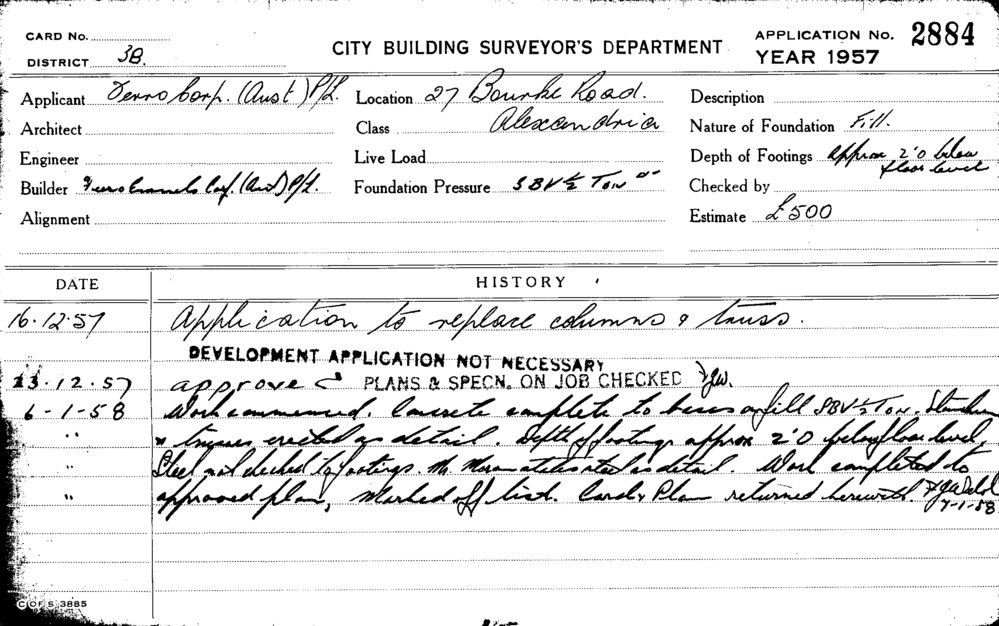 CARD No.
CITY BUILDING SURVEYOR'S DEPARTMENT
APPLICATION No. 2884
DISTRICT 3B.
YEAR 1957
Applicant Ferro Corp. (Aust) P/L. Location 27 Bourke Road. Description
Alexandria
Architect Class Nature of Foundation Fill.
Engineer Live Load Depth of Footings approx 2'0 below
floor level
Builder Ferro Enamels Corp. (Aust) P/L. Foundation Pressure SBV ½ Ton Checked by
Alignment Estimate £500
DATE HISTORY
16.12.57 Application to replace columns & truss.
DEVELOPMENT APPLICATION NOT NECESSARY
23.12.57 approved PLANS & SPECN. ON JOB CHECKED
6-1-58 Work commenced. Concrete complete to bases on fill SBV ½ Ton.
" trusses erected as detail. Depth of footings approx 2'0 below floor level.
" Steel not checked to footings. Mr. states steel as detail. Work completed to
" approved plan, marked off list. Card & Plan returned herewith.
7-1-58
C OF S 3885